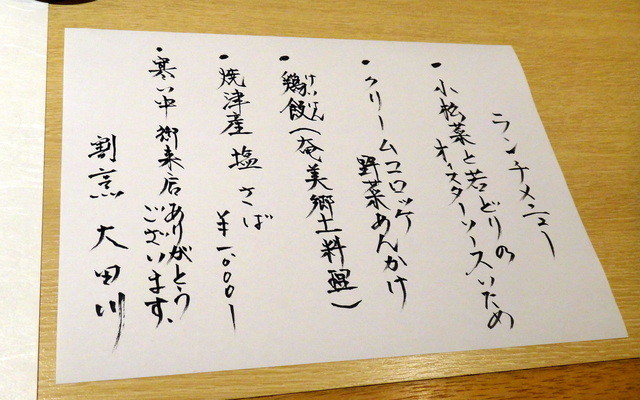 ランチメニュー
・小松菜と若どりの
オイスターソースいため
・クリームコロッケ
野菜あんかけ
・鶏飯(奄美郷土料理)
けいはん
・焼津産 塩さば
￥1,000ー
・寒い中御来店ありがとう
ございます。
割烹 大田川